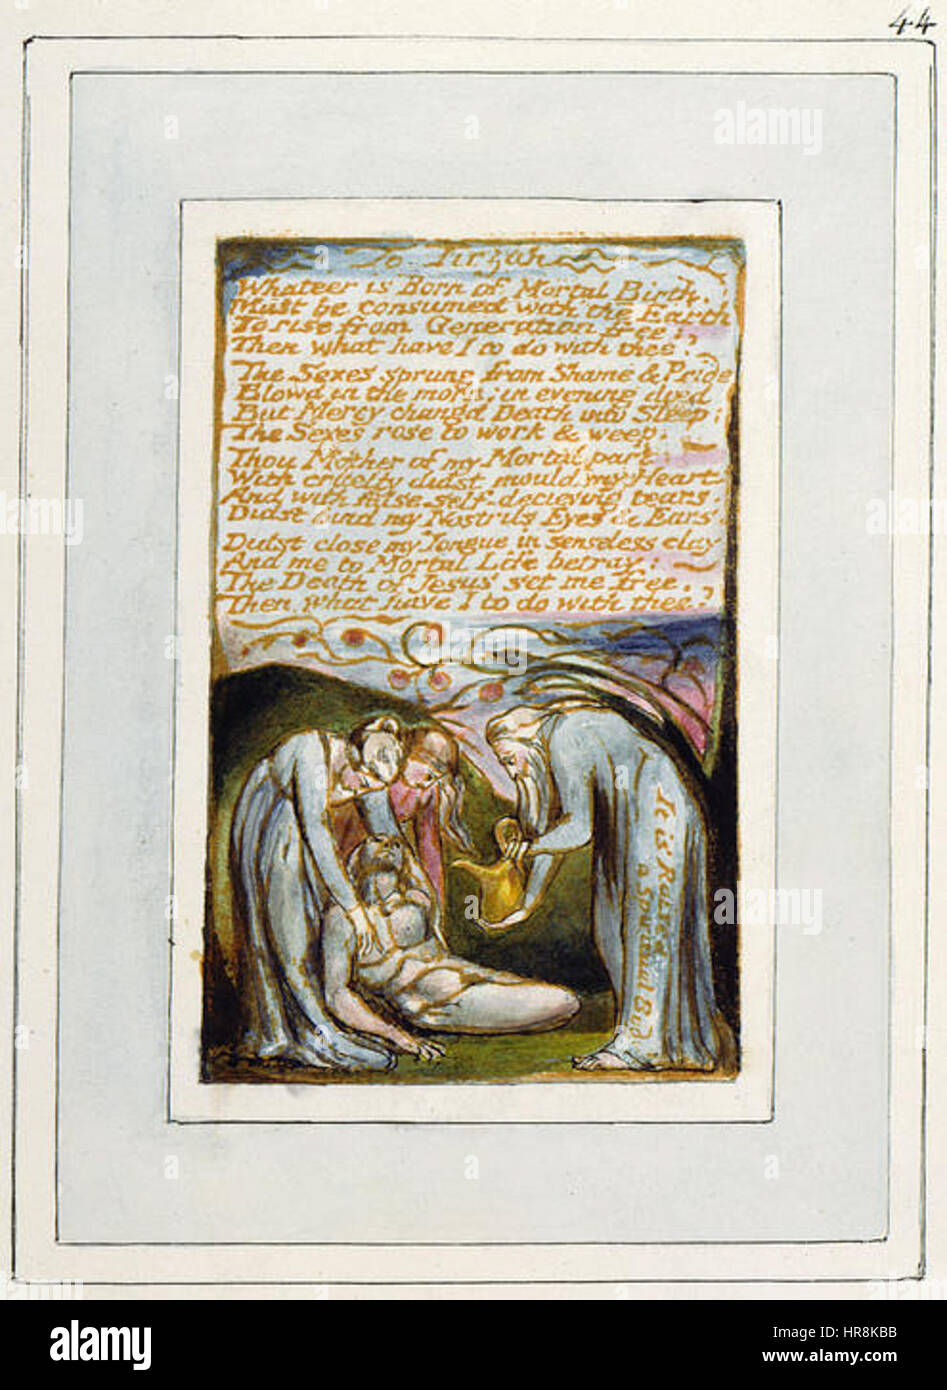 44
To Tirzah
Whateer is Born of Mortal Birth.
Must be consumed with the Earth
To rise from Generation free:
Then what have I to do with thee?
The Sexes sprung from Shame & Pride
Blowd in the morn: in evening died
But Mercy changd Death into Sleep:
The Sexes rose to work & weep.
Thou Mother of my Mortal part
With cruelty didst mould my Heart
And with false self-decieving tears.
Didst bind my Nostrils Eyes & Ears.
Didst close my Tongue in senseless clay
And me to Mortal Life betray:
The Death of Jesus set me free.
Then what have I to do with thee?
It is Raised
a Spiritual Body
alamy
alamy
alamy
Image ID: HR8KBB
www.alamy.com